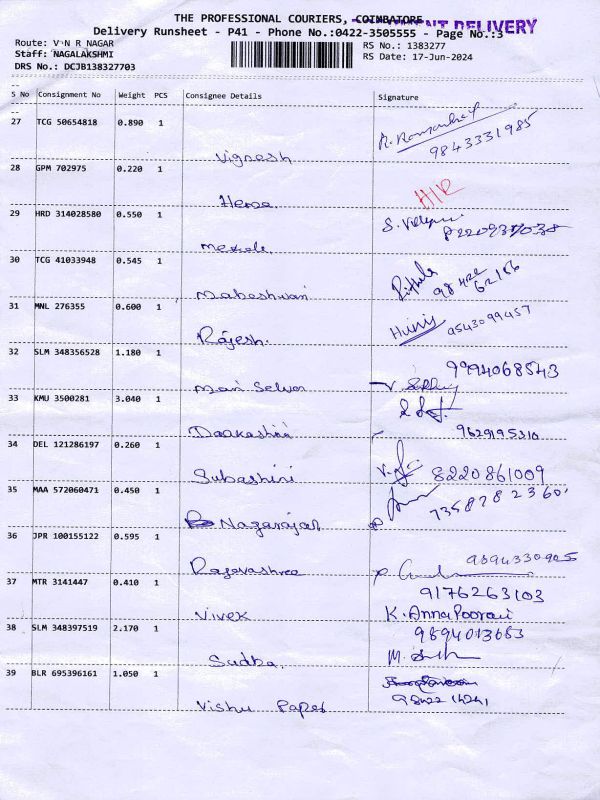 THE PROFESSIONAL COURIERS, COIMBATORE
DELIVERY
Delivery Runsheet - P41 - Phone No.:0422-3505555 - Page No.:3
Route: V N R NAGAR
RS No.: 1383277
Staff: NAGALAKSHMI
RS Date: 17-Jun-2024
DRS No.: DCJB138327703
S No Consignment No Weight PCS Consignee Details Signature
27 TCG 50654818 0.890 1
9843331985
Vignesh
28 GPM 702975 0.220 1
Hema
29 HRD 314028580 0.550 1
30 TCG 41033948 0.545 1
98422
62166
Maheshwari
31 MNL 276355 0.600 1
9543099457
Rajesh.
32 SLM 348356528 1.180 1
9994068543
Mari Selvan
33 KMU 3500281 3.040 1
9629195310
34 DEL 121286197 0.260 1
8220861009
Subashini
35 MAA 572060471 0.450 1
7358782360
Nagarajan
36 JPR 100155122 0.595 1
9894330905
37 MTR 3141447 0.410 1
9176263103
Vivek
K. AnnaPoorani
38 SLM 348397519 2.170 1
9894013683
Sudha.
39 BLR 695396161 1.050 1
98422 14241
Vishu Paper